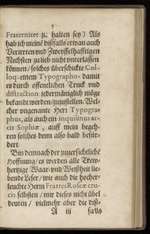 3
Fraternitet ꝛc. halten sey) Als
hab ich meinẽ dißfalls etwan auch
Verirreten und Zweiffelhafftigen
Nechsten zu lieb nicht unterlassen
können / solches überschickte Col-
loquium Typographo / damit
es durch offentlichen Truck und
distraction jedermänniglich möge
bekandt werden / zuzustellen. Wel-
cher ungenante Herꝛ Typogra-
phus, als auch ein inquilinus ar-
cis Sophiæ, auff mein begeh-
ren solches denn also bald beför-
dert
Bin demnach der unverfächliche
Hoffnung / es werden alle Trew-
hertzige Waar- und Weißheit lie-
bende Leser / wie auch die hocher-
leuchte Herrn Fratres Roseæ cru-
cis selbsten / mir dieses nicht übel
deuten / vielmehr aber die diß-
A iij falls